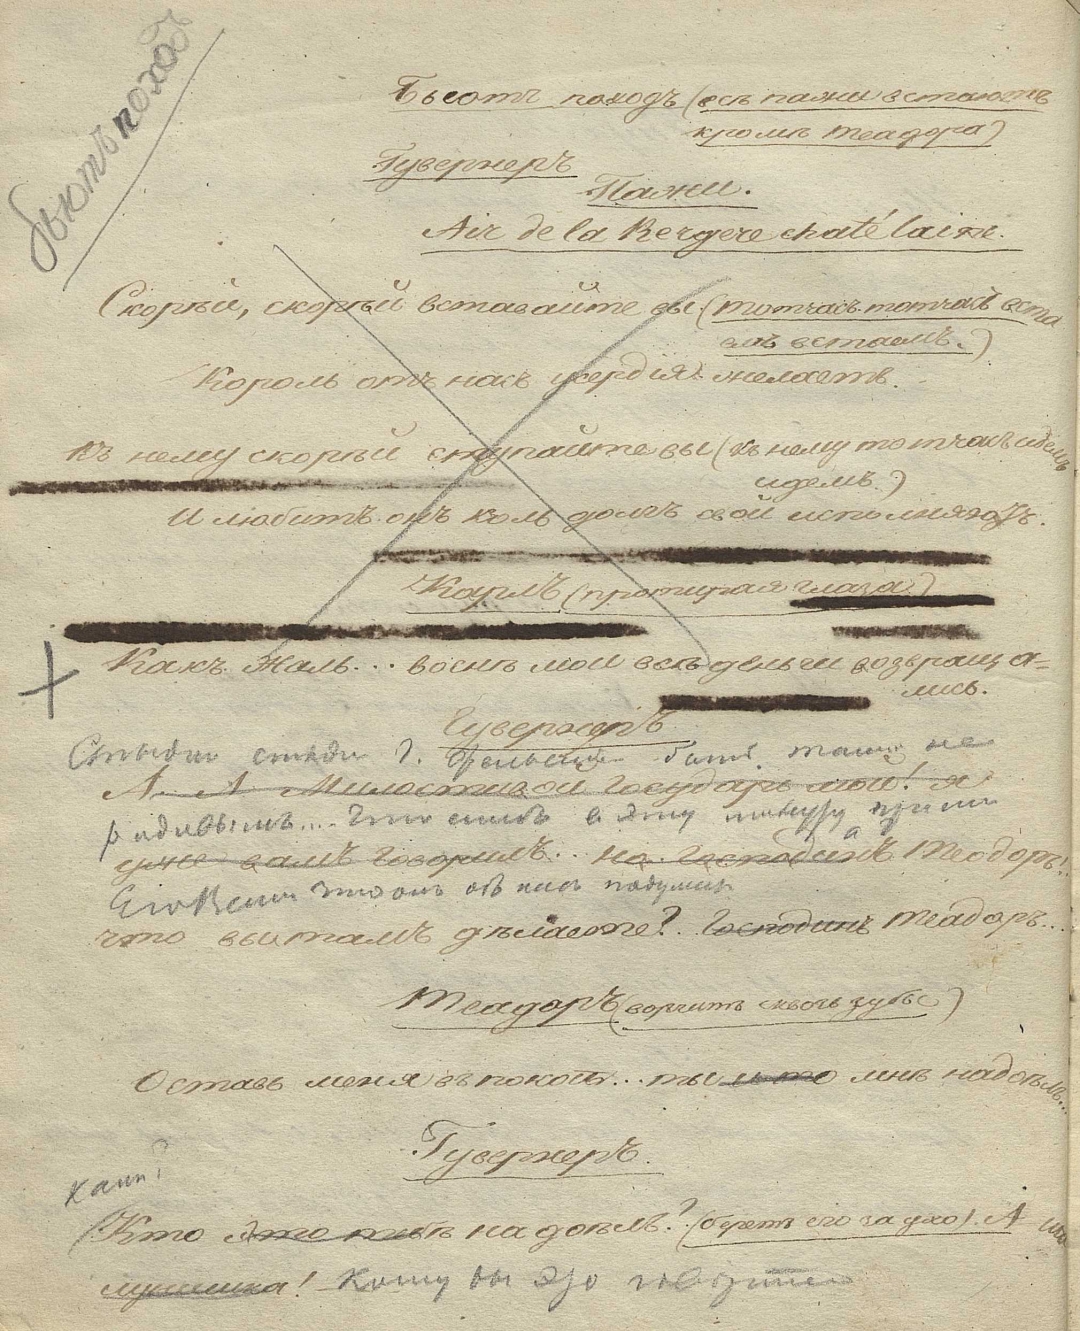 бьютъ походъ
Бьютъ походъ (всѣ пажи встаютъ
кромѣ Теадора)
Гувернеръ
Пажи.
Air de la Bergere chatélaine.
Скорѣй, скорѣй вставайте вы (тотчасъ тотчасъ вста
емъ встаемъ.)
Король отъ насъ усердія желаетъ.
къ нему скорѣй ступайте вы (къ нему тотчасъ идемъ
идемъ.)
И любитъ онъ коль долгъ свой исполняютъ.
Карлъ (протирая глаза)
Какъ жаль... восемь мои всѣ деньги возвраща-
лись.
Гувернеръ
Стыдно стыдно Г. быть такъ не
А. А Милостивой Государь мой! я
радивымъ.... Что естьли въ эту минуту
уже вамъ говорилъ... но господинъ Теодоръ!..
Его Вели что онъ объ насъ подумаетъ
что вы тамъ дѣлаете? Господинъ Теадоръ....
Теадоръ (ворчитъ сквозь зубы)
Оставь меня въ покоѣ... ты мнѣ надоѣлъ...
Гувернеръ.
какъ?
Кто это тебѣ надоѣлъ? (беретъ его за ухо) А
! Кому вы это говорите